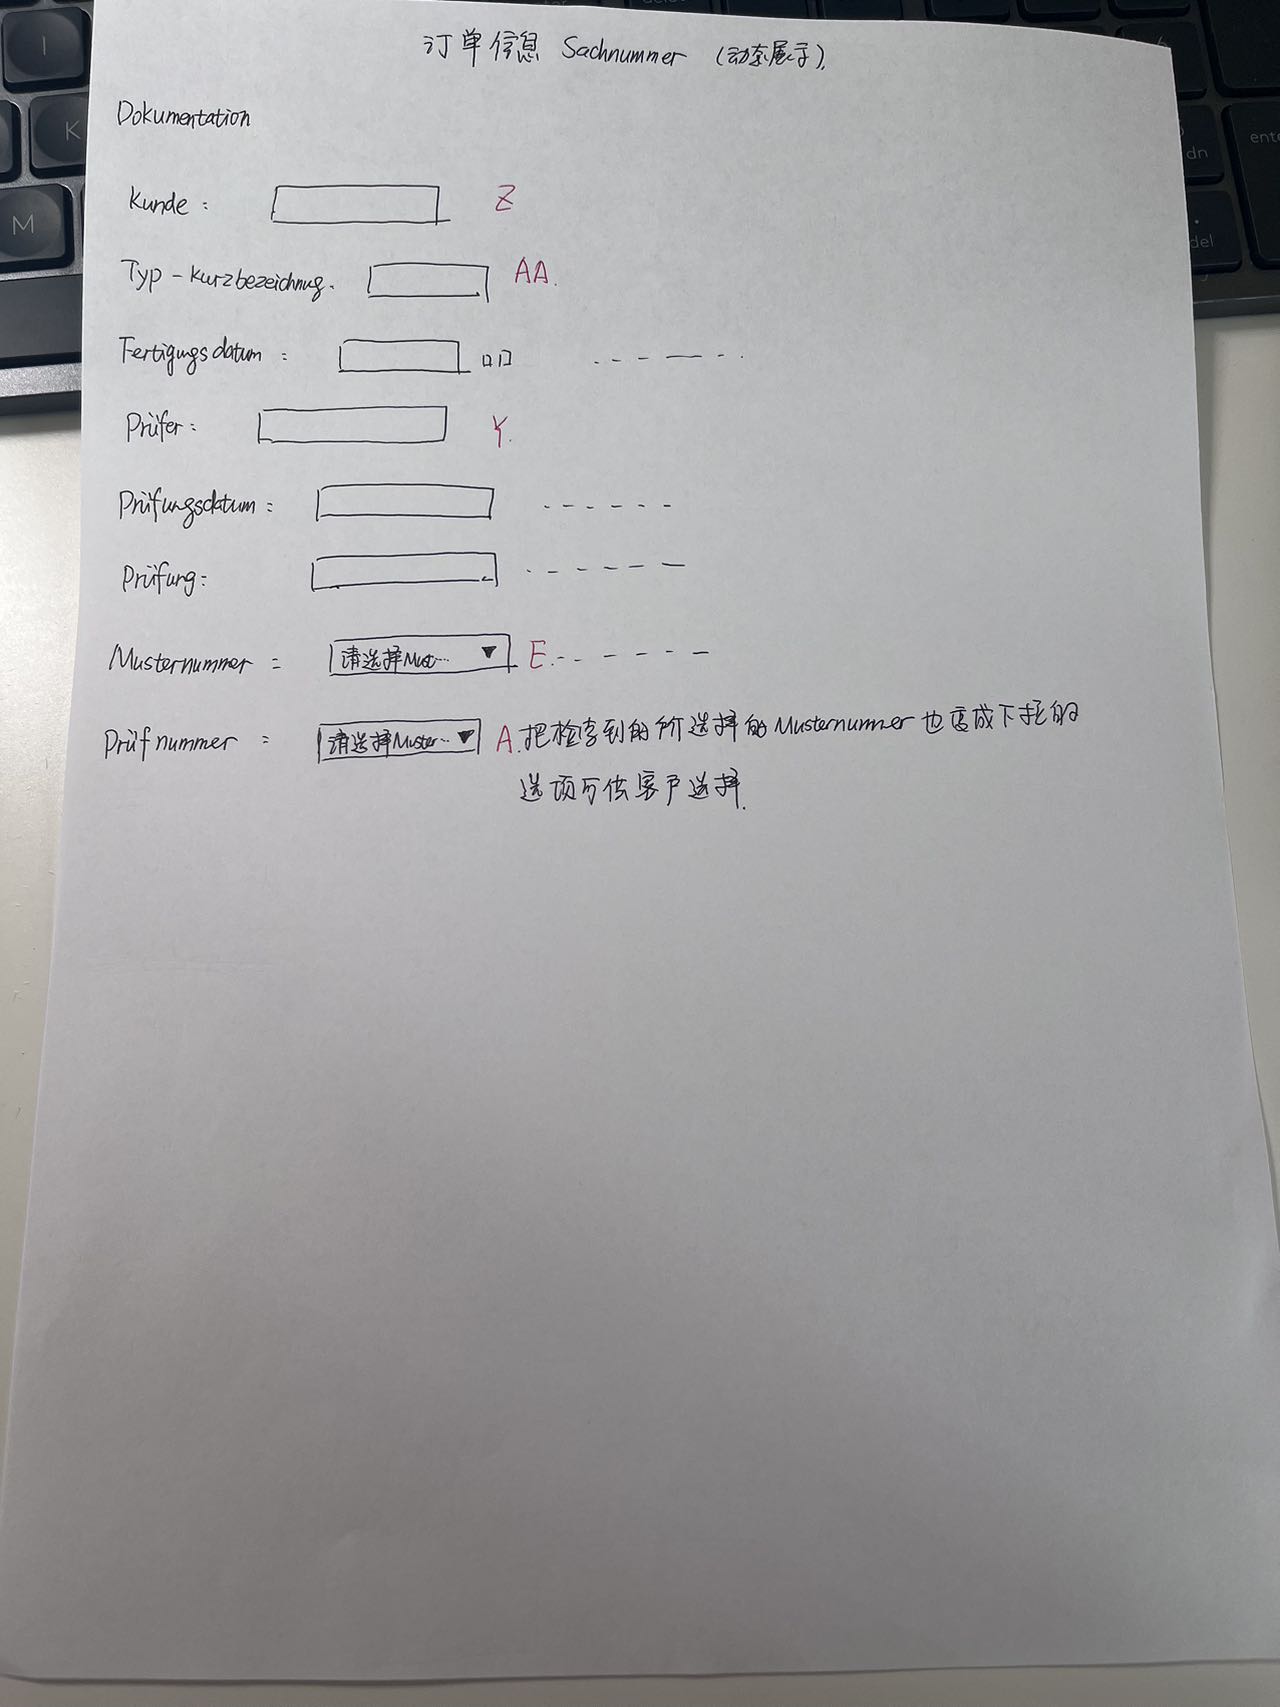 订单信息 Sachnummer (动态展示).
Dokumentation
Kunde: Z
Typ-Kurzbezeichnug. AA.
Fertigungsdatum:
Prüfer: Y.
Prüfungsdatum:
Prüfung:
Musternummer: 请选择Must... ▼ E.
Prüfnummer: 请选择Muster... ▼ A. 把检索到的所选择的Musternummer也 成下拉的
选项可供客户选择.
I
K
M
dn
del
ente